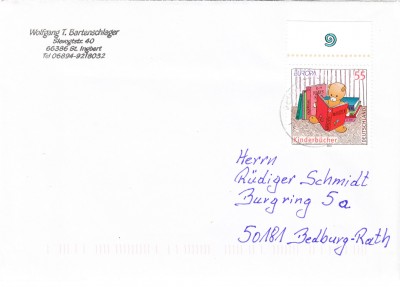 Wolfgang T. Bartenschlager
66386 St. Ingbert
Tel 06894-9218032
EUROPA 55
DEUTSCHLAND
Kinderbücher
Herrn
Rüdiger Schmidt
Burgring 5a
50181 Bedburg-Rath